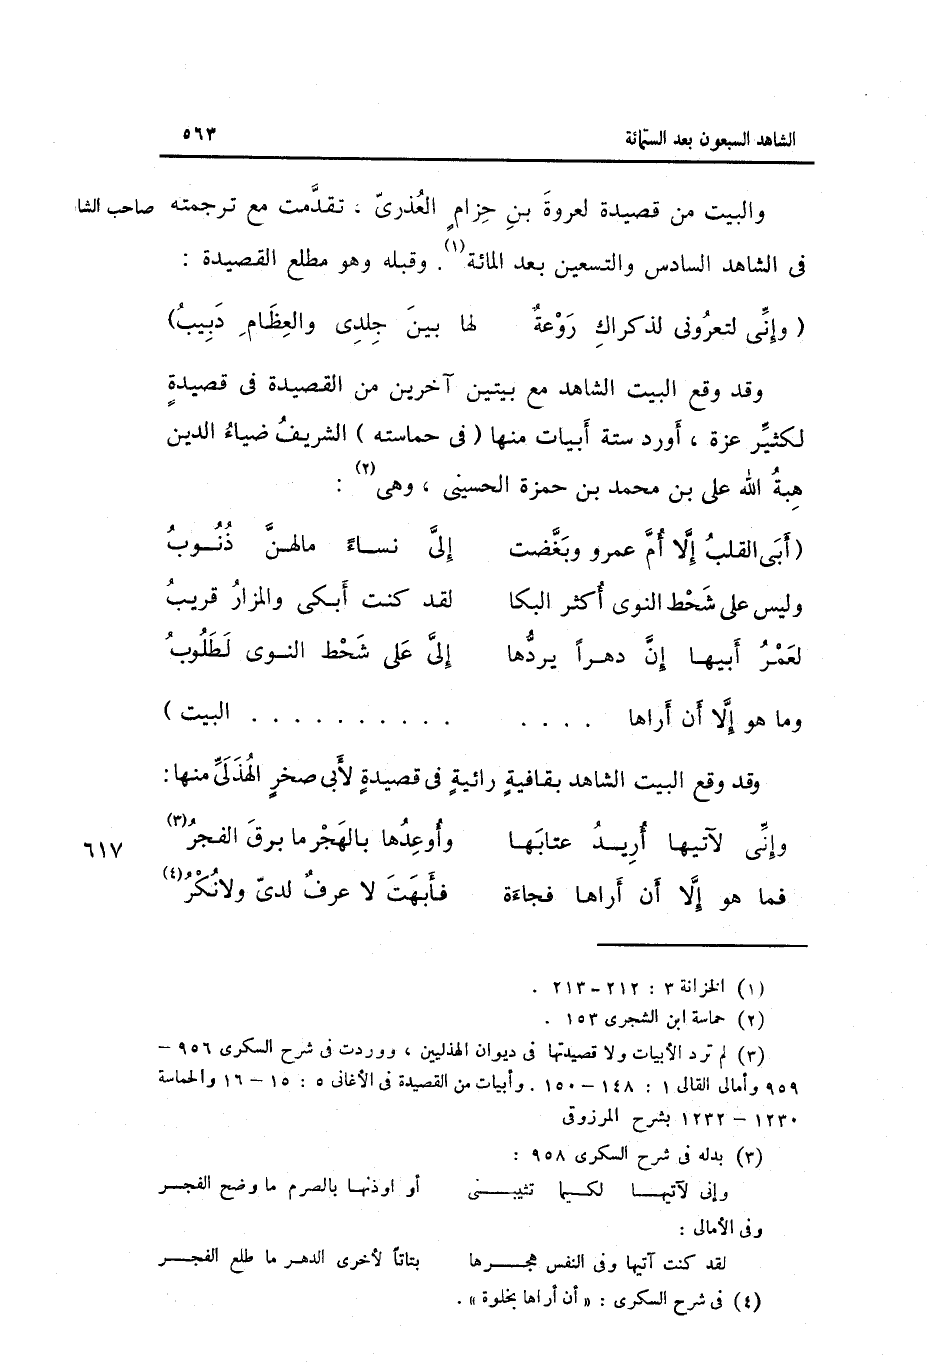 الشاهد السبعون بعد الستمائة ٥٦٣
والبيت من قصيدة لعروةَ بنِ حِزامٍ العُذرىّ ، تقدَّمت مع ترجمته صاحب الشا
فى الشاهد السادس والتسعين بعد المائة(١). وقبله وهو مطلع القصيدة :
( وإنِّى لتعرُونى لذكراكِ رَوْعةٌ لها بينَ جِلدِى والعِظَامِ دَبِيبُ)
وقد وقع البيت الشاهد مع بيتين آخرين من القصيدة فى قصيدةٍ
لكثيِّر عزة ، أورد ستة أبيات منها ( فى حماسته ) الشريفُ ضياءُ الدين
هبةُ الله على بن محمد بن حمزة الحسينى ، وهى(٢) :
(أَبَى القلبُ إلَّا أُمَّ عمرو وبَغَّضت إلىَّ نساءً مالهنَّ ذُنُوبُ
وليس على شَحْط النوى أُكثر البكا لقد كنت أَبكى والمزارُ قريبُ
لعَمْرُ أَبيها إنَّ دهراً يردُّها إلىَّ عَلَى شَحْط النوى لَطَلُوبُ
وما هو إلَّا أن أَراها . . . . . . . . . . . . . . البيت )
وقد وقع البيت الشاهد بقافيةٍ رائيةٍ فى قصيدةٍ لأَبى صخرٍ الهُذَلىِّ منها:
وإنِّى لآتيها أُرِيدُ عتابَها وأُوعِدُها بالهَجْر ما برقَ الفجرُ(٣) ٦١٧
فما هو إلَّا أن أَراها فجاءَة فأَبهَتَ لا عرفٌ لدىّ ولانُكْرُ(٤)
(١) الخزانة ٣ : ٢١٢ - ٢١٣ .
(٢) حماسة ابن الشجرى ١٥٣ .
(٣) لم ترد الأبيات ولا قصيدتها فى ديوان الهذليين ، ووردت فى شرح السكرى ٩٥٦ –
٩٥٩ وأمالى القالى ١ : ١٤٨ – ١٥٠ . وأبيات من القصيدة فى الأغانى ٥ : ١٥ – ١٦ والحماسة
١٢٣٠ – ١٢٣٢ بشرح المرزوقى
(٣) بدله فى شرح السكرى ٩٥٨ :
وإنى لآتيها لكيما تثيبنى أو اوذنها بالصرم ما وضح الفجر
وفى الأمالى :
لقد كنت آتيها وفى النفس هجرها بتاتاً لأخرى الدهر ما طلع الفجر
(٤) فى شرح السكرى : « أن أراها بخلوة » .